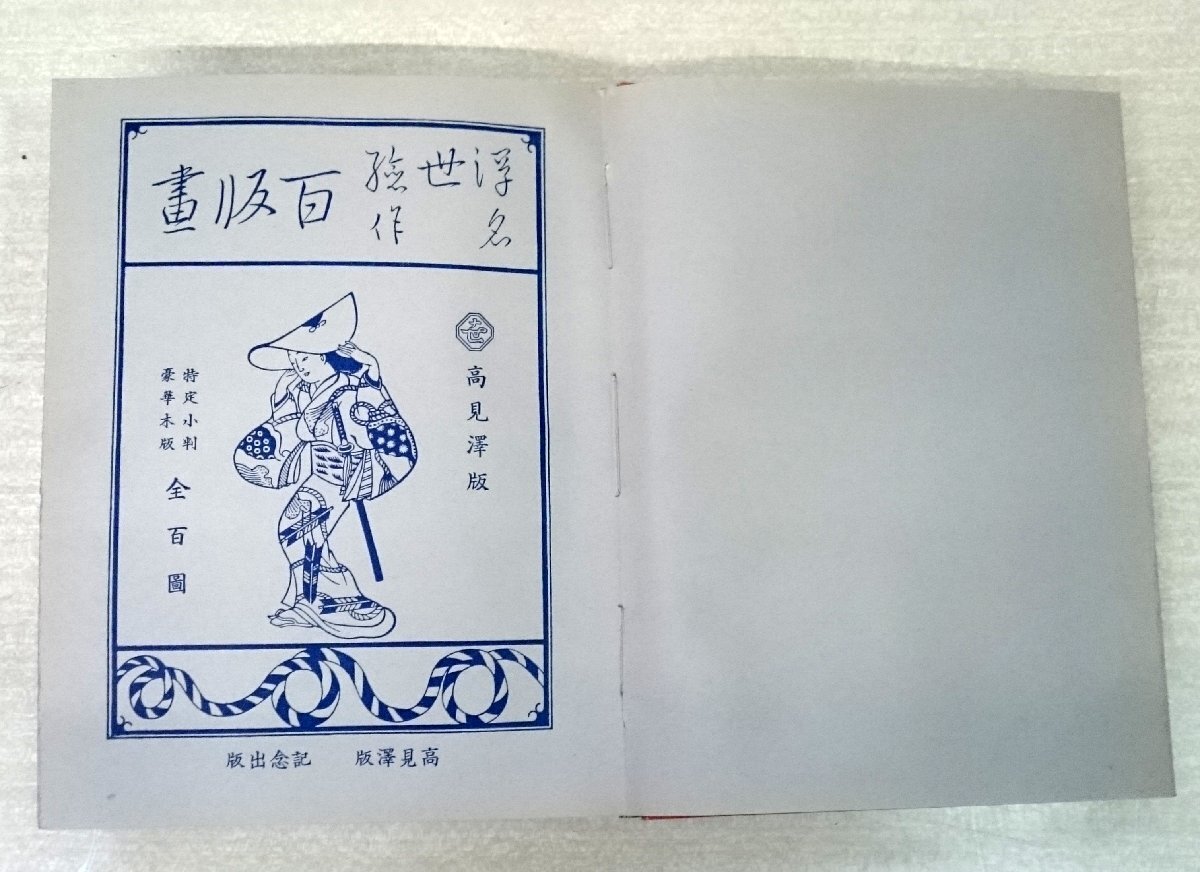 浮世繪
名作
百版畫
高見澤版
特定小判
豪華木版
全百圖
高見澤版 記念出版